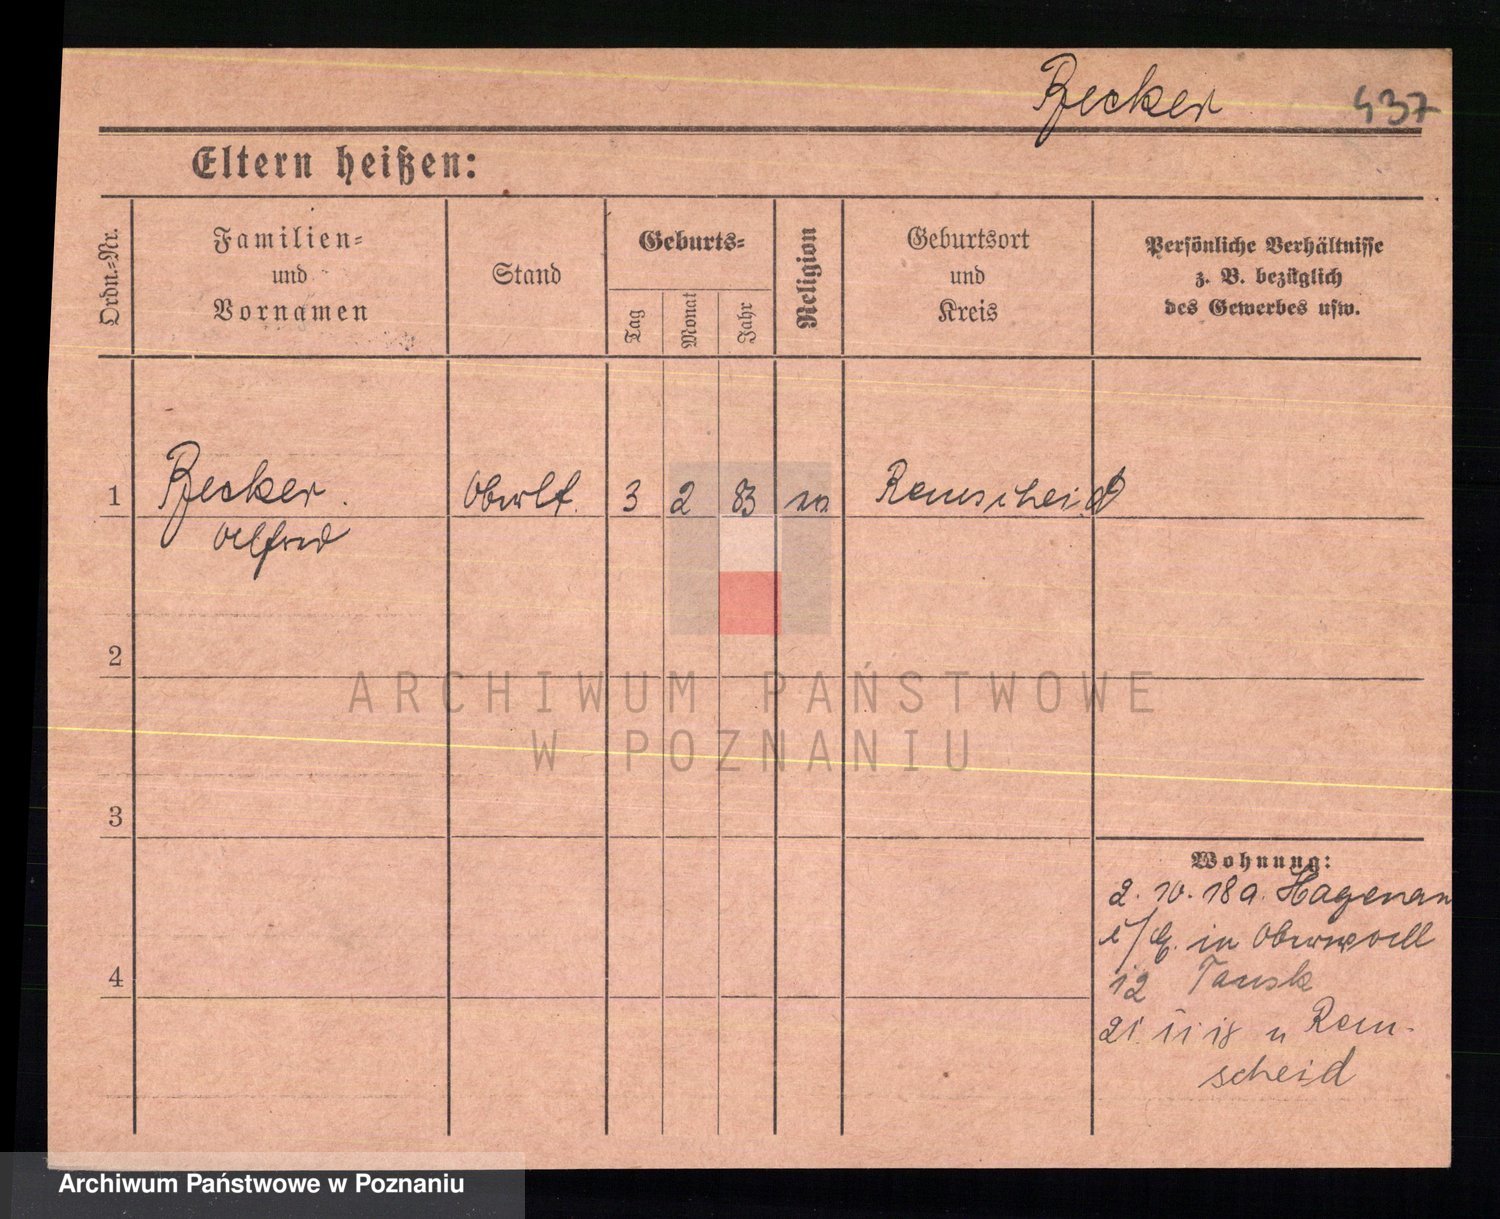 Becker 437
Eltern heißen:
Ordn.-Nr.
Familien-
und
Vornamen
Stand
Geburts-
Tag
Monat
Jahr
Religion
Geburtsort
und
Kreis
Persönliche Verhältnisse
z. B. bezüglich
des Gewerbes usw.
1 Becker Oberlt. 3 2 83 Remscheid
Alfred
2
3
4
Wohnung:
2. 10. 18 a. Hagenau
i/E. in Oberwall
12 Tausk
21. 11 18 n Rem-
scheid
ARCHIWUM PAŃSTWOWE
W POZNANIU
Archiwum Państwowe w Poznaniu